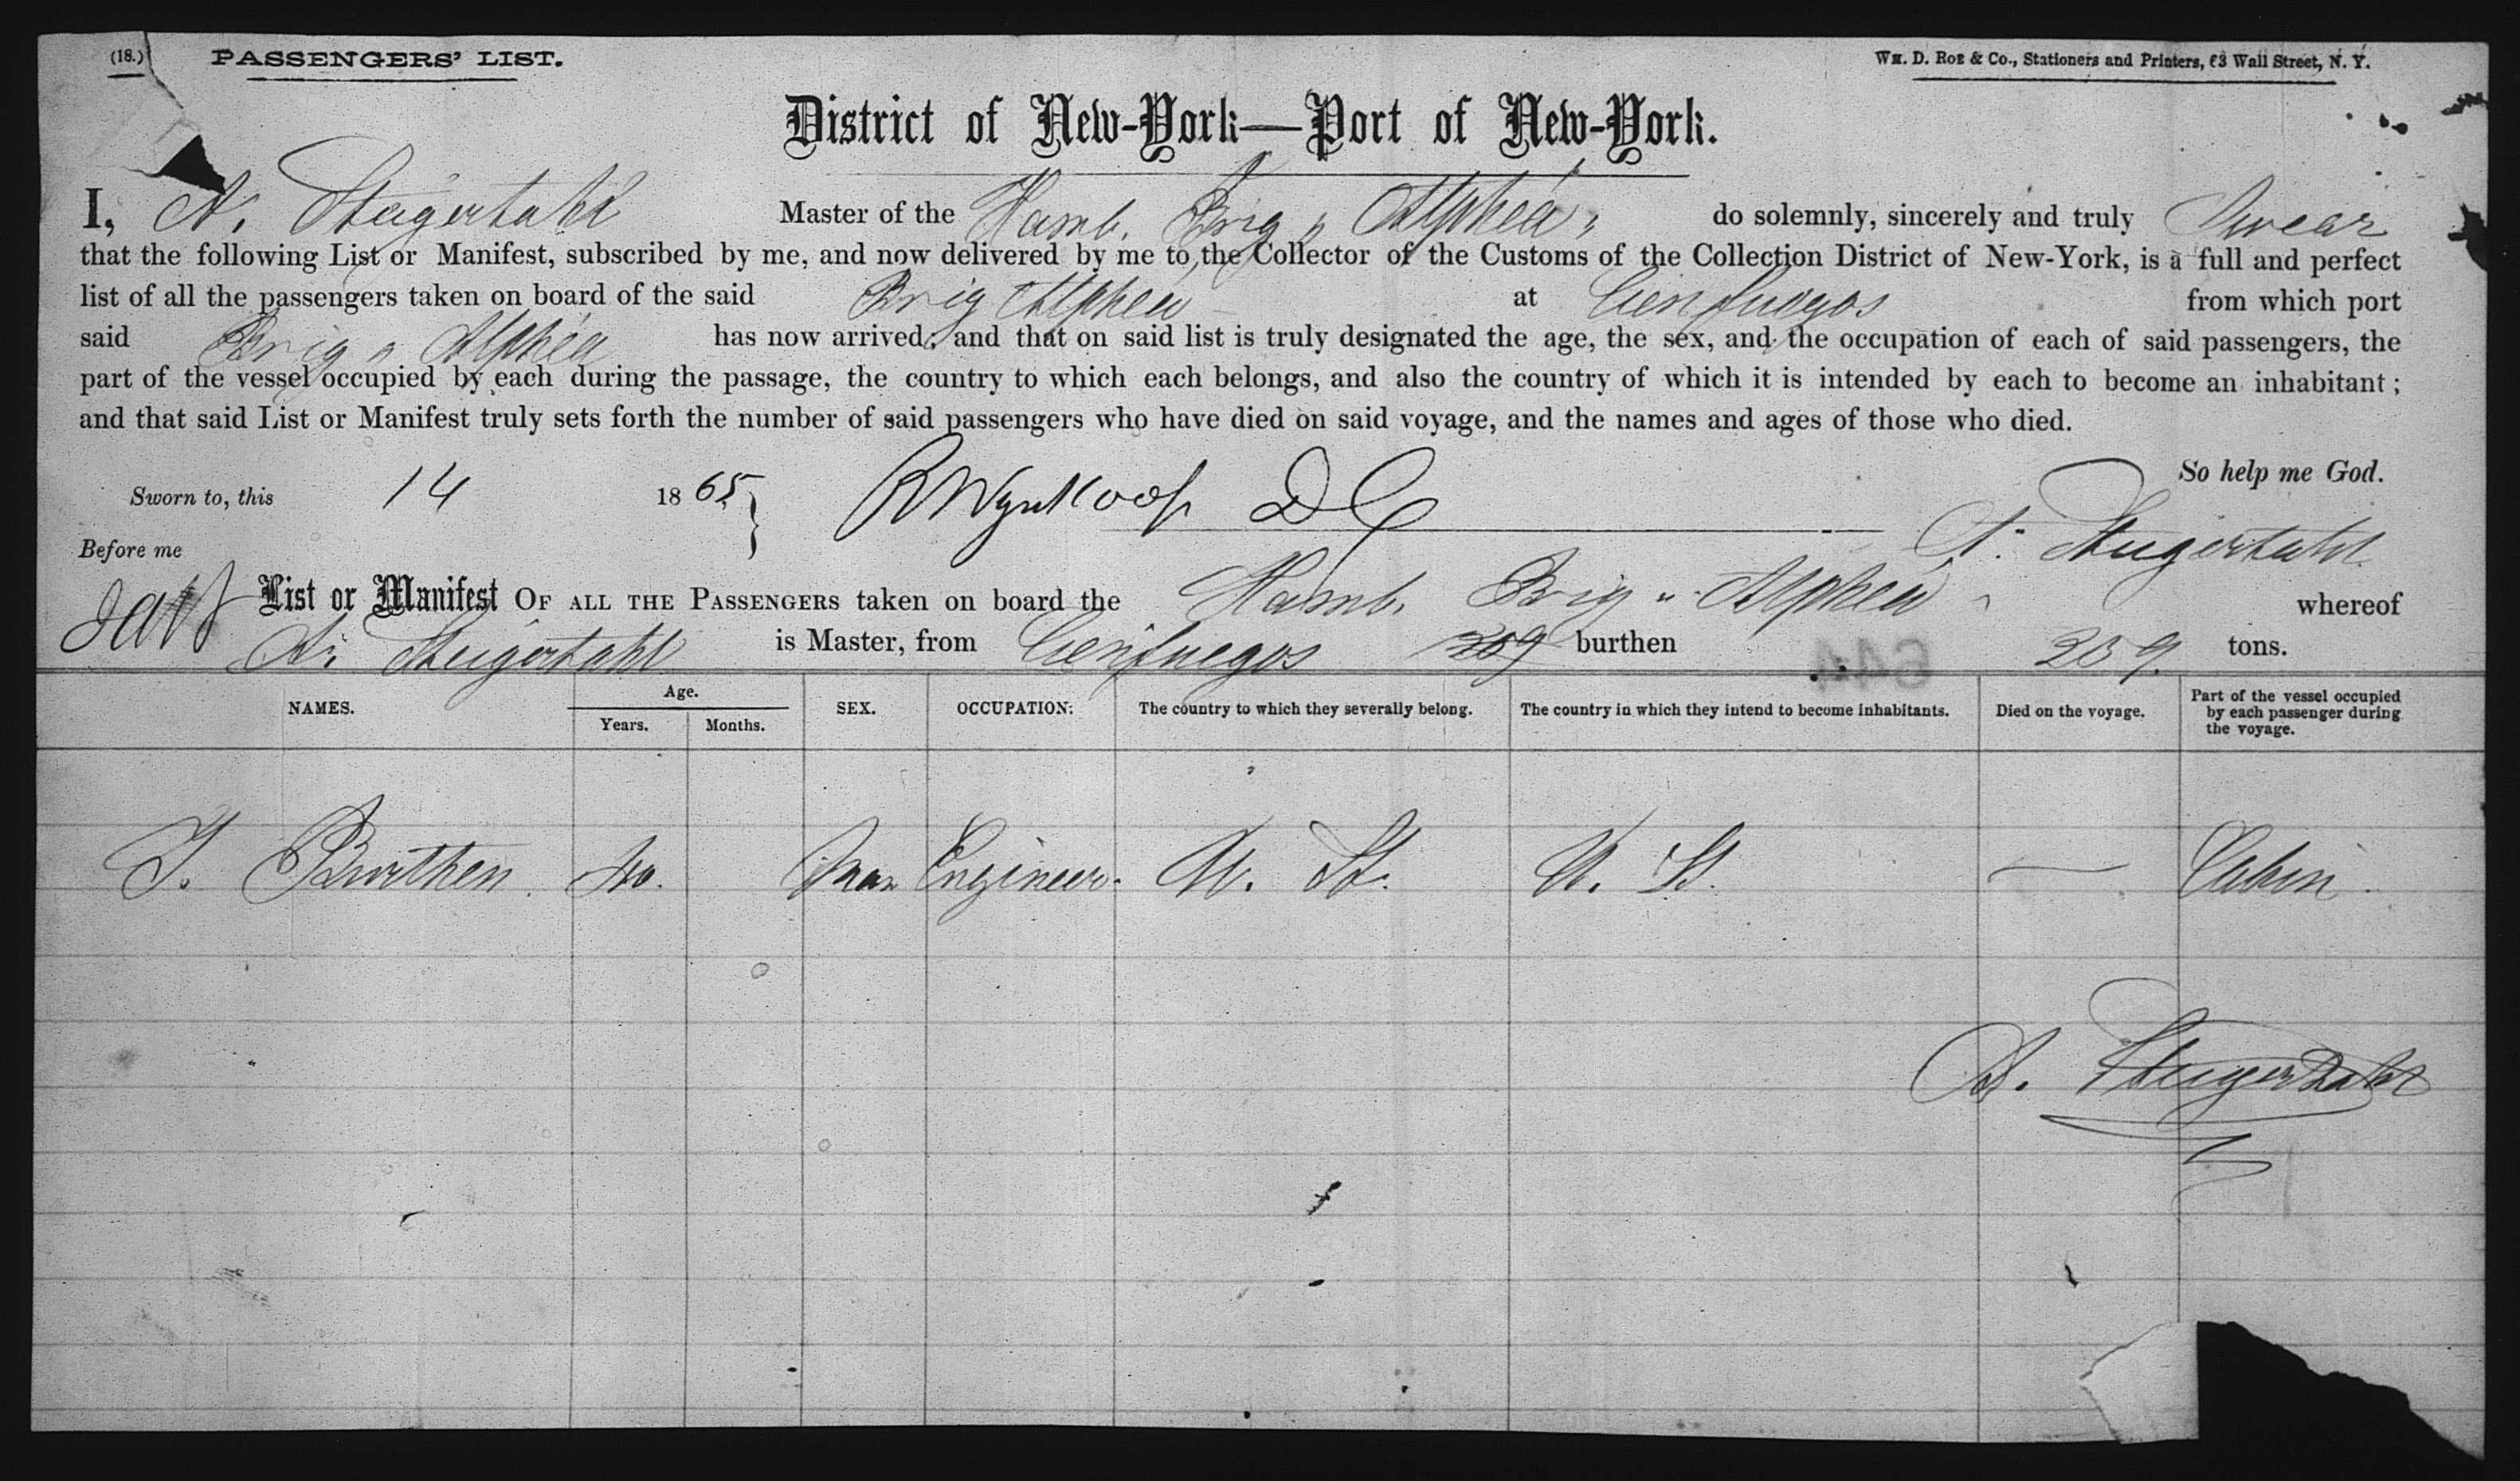 (18.) PASSENGERS' LIST. Wm. D. Roe & Co., Stationers and Printers, 63 Wall Street, N. Y.
District of New-York—Port of New-York.
I, Master of the Hamb. Brig "Alphea" do solemnly, sincerely and truly Swear
that the following List or Manifest, subscribed by me, and now delivered by me to the Collector of the Customs of the Collection District of New-York, is a full and perfect
list of all the passengers taken on board of the said Brig Alphea at Cienfuegos from which port
said Brig "Alphea has now arrived; and that on said list is truly designated the age, the sex, and the occupation of each of said passengers, the
part of the vessel occupied by each during the passage, the country to which each belongs, and also the country of which it is intended by each to become an inhabitant;
and that said List or Manifest truly sets forth the number of said passengers who have died on said voyage, and the names and ages of those who died.
So help me God.
Sworn to, this 14 1865 } R Wynkoop D C
Before me
List or Manifest OF ALL THE PASSENGERS taken on board the Hamb. Brig "Alphea" whereof
is Master, from Cienfuegos 259 burthen 259 tons.
NAMES. Age. Years. Months. SEX. OCCUPATION. The country to which they severally belong. The country in which they intend to become inhabitants. Died on the voyage. Part of the vessel occupied by each passenger during the voyage.
Burthen 40. Man Engineer. U. St. U. St. — Cabin.